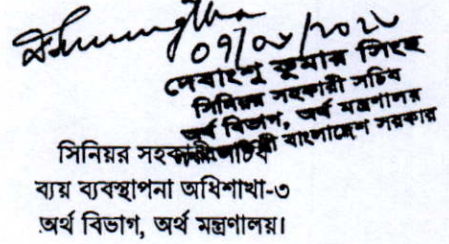 দেবাংশু কুমার সিংহ
সিনিয়র সহকারী সচিব
অর্থ বিভাগ, অর্থ মন্ত্রণালয়
বাংলাদেশ সরকার
সিনিয়র সহকারী সচিব
ব্যয় ব্যবস্থাপনা অধিশাখা-৩
অর্থ বিভাগ, অর্থ মন্ত্রণালয়।